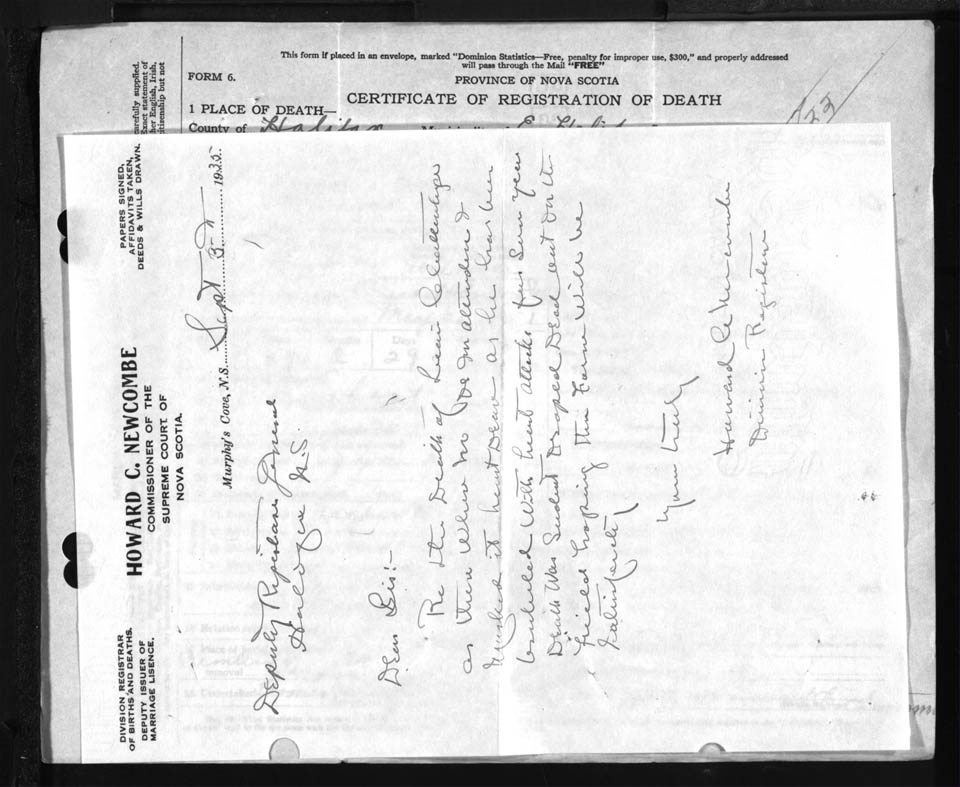 This form if placed in an envelope, marked "Dominion Statistics—Free, penalty for improper use, $300," and properly addressed
will pass through the Mail "FREE"
FORM 6.
PROVINCE OF NOVA SCOTIA
CERTIFICATE OF REGISTRATION OF DEATH
1 PLACE OF DEATH—
County of Halifax
423
carefully supplied.
Exact statement of
her English, Irish,
itizenship but not
DIVISION REGISTRAR
OF BIRTHS AND DEATHS.
DEPUTY ISSUER OF
MARRIAGE LISENCE.
HOWARD C. NEWCOMBE
COMMISSIONER OF THE
SUPREME COURT OF
NOVA SCOTIA.
PAPERS SIGNED,
AFFIDAVITS TAKEN,
DEEDS & WILLS DRAWN.
Murphy's Cove, N.S. Sept 3rd 1935
Deputy Registrar General
Halifax N.S.
Dear Sir:
Re the Death of
as there where no Doc in attendence I
Marked it heart Dease as he has been
troubled with heart attacks for some years
Death was Sudent Droped Dead out on the
Field hoping this Form will be
Satinfactry
yours truly
Howard C Newcombe
Division Registrar